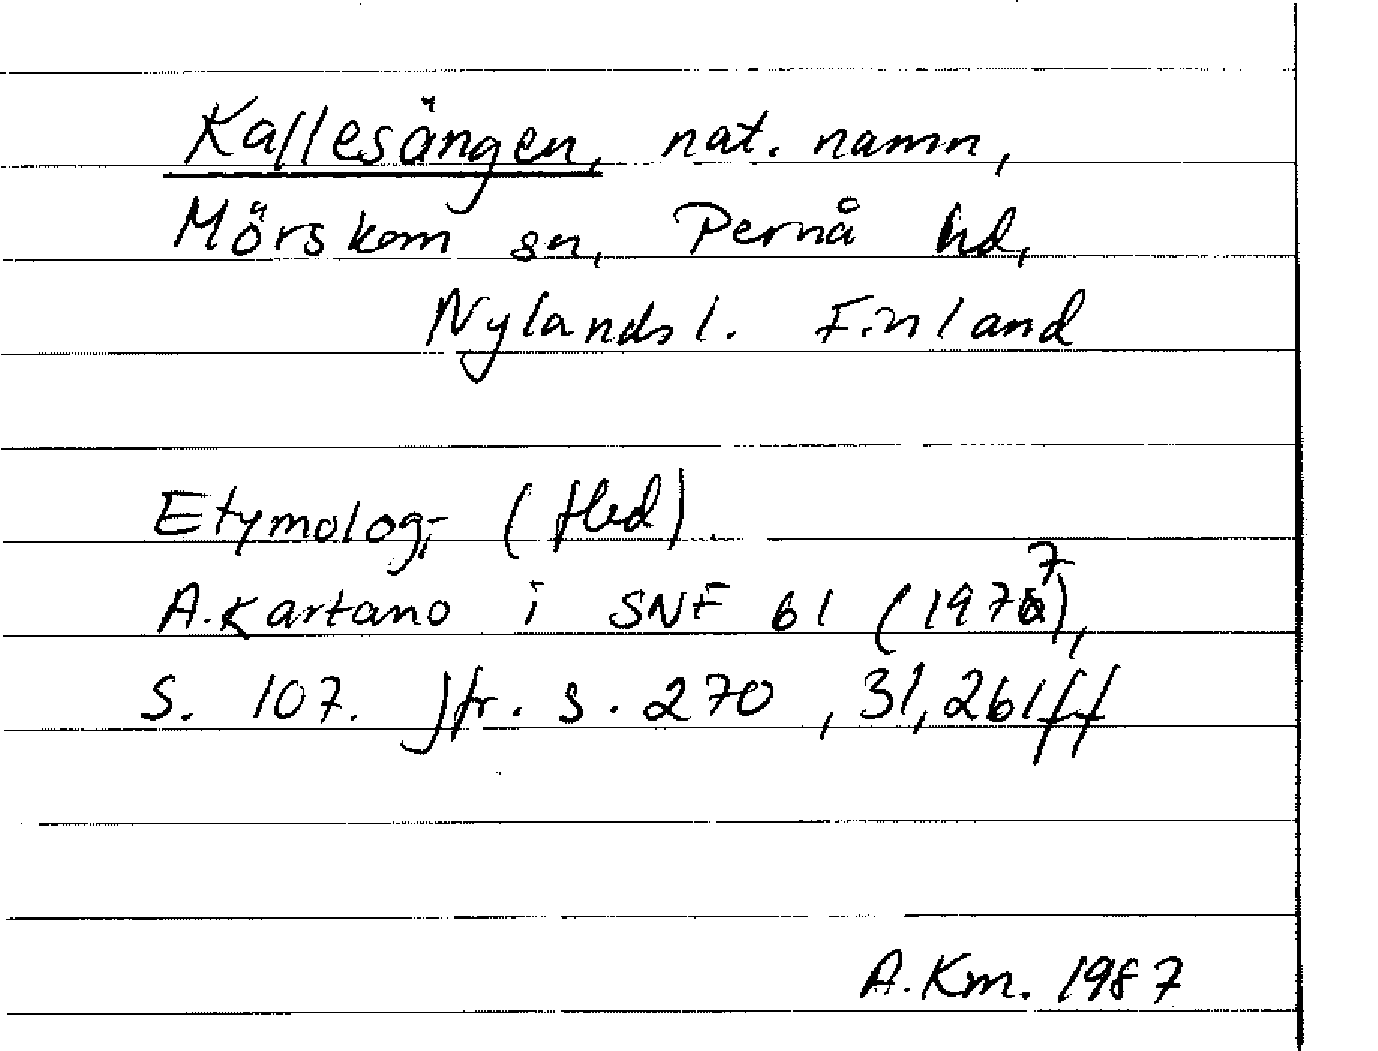 Kallesängen, nat. namn,
Mörskom sn, Pernå hd,
Nylands l. Finland
Etymologi (fled).
A. Kartano i SNF 61 (1977),
S. 107. Jfr. s. 270, 31, 261ff
A.Km. 1987